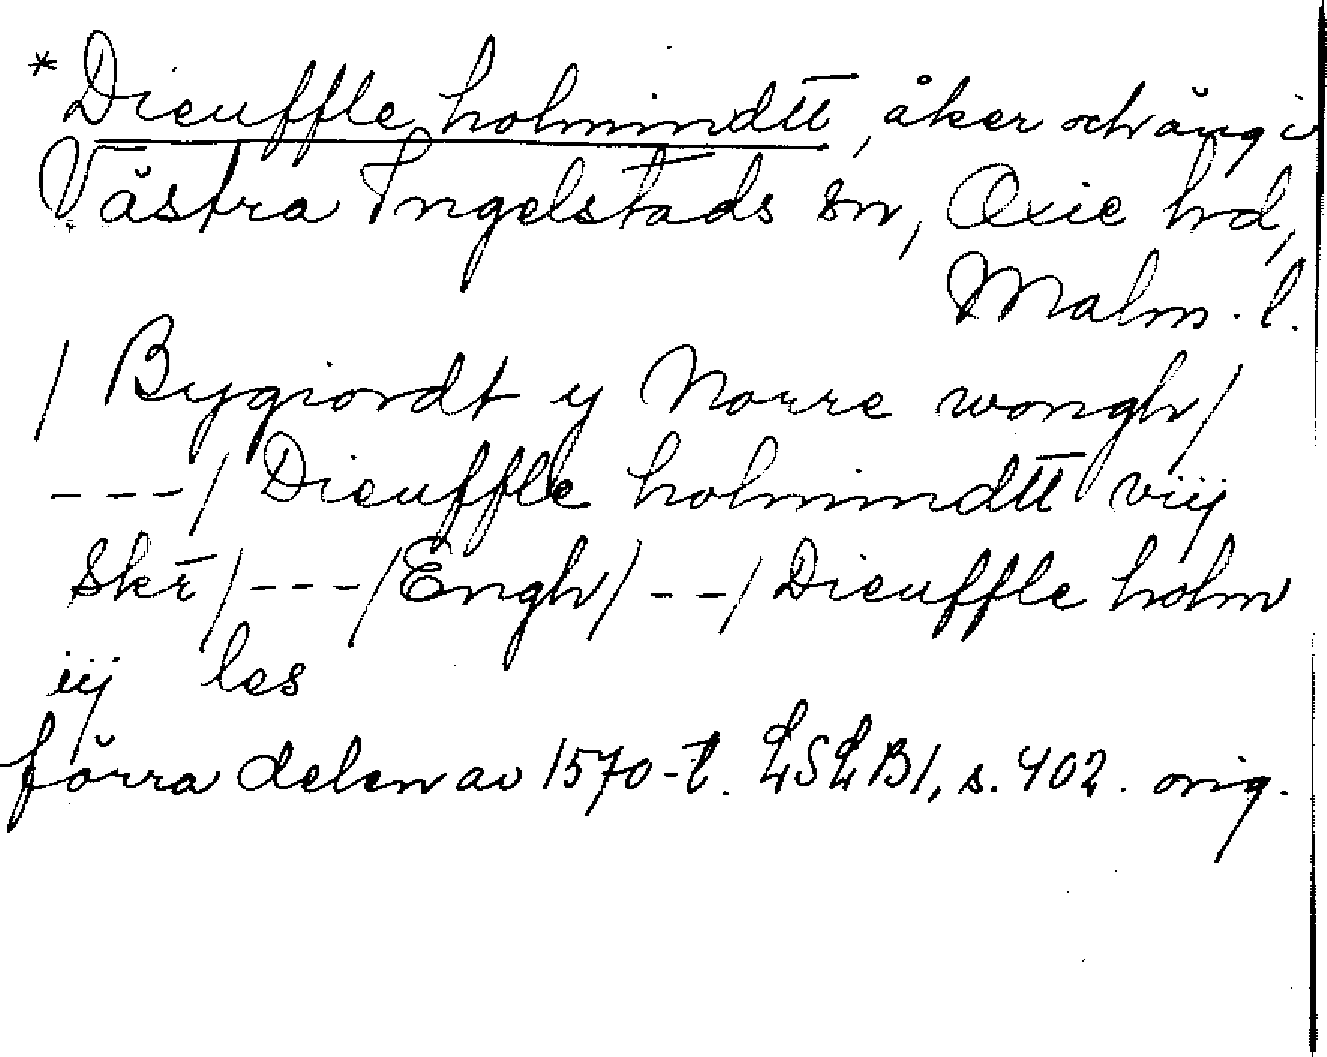 * Dieuffle holmindtt, åker och äng i
Västra Ingelstads sn, Oxie hd,
Malm. l.
/ Bygiordt y Norre wongh/
---/ Dieuffle holmindtt viij
Skr̄/---/Engh/--/Dieuffle holm
iij les
förra delen av 1570-t. LSLB1, s. 402. orig.